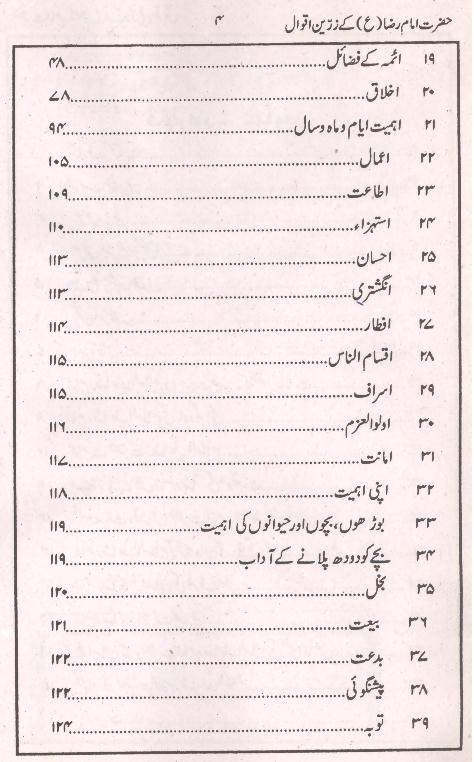 حضرت امام رضا (ع) کے زرّین اقوال ۴
۱۹ ائمہ کے فضائل ۴۸
۲۰ اخلاق ۷۸
۲۱ اہمیت ایام و ماہ و سال ۹۴
۲۲ اعمال ۱۰۵
۲۳ اطاعت ۱۰۹
۲۴ استہزاء ۱۱۰
۲۵ احسان ۱۱۳
۲۶ انگشتری ۱۱۳
۲۷ افطار ۱۱۴
۲۸ اقسام الناس ۱۱۵
۲۹ اسراف ۱۱۵
۳۰ اولوالعزم ۱۱۶
۳۱ امانت ۱۱۷
۳۲ اپنی اہمیت ۱۱۸
۳۳ بوڑھوں، بچوں اور حیوانوں کی اہمیت ۱۱۹
۳۴ بچے کو دودھ پلانے کے آداب ۱۱۹
۳۵ بخل ۱۲۰
۳۶ بیعت ۱۲۱
۳۷ بدعت ۱۲۲
۳۸ پیشنگوئی ۱۲۲
۳۹ توبہ ۱۲۴